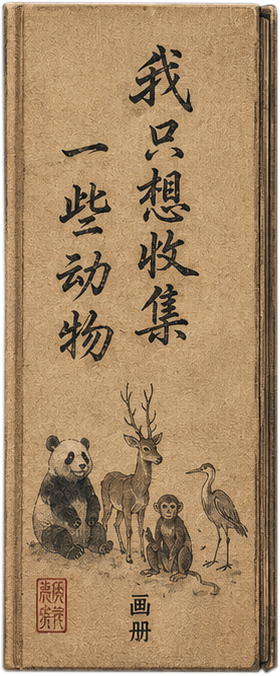 我只想收集
一些动物
画册